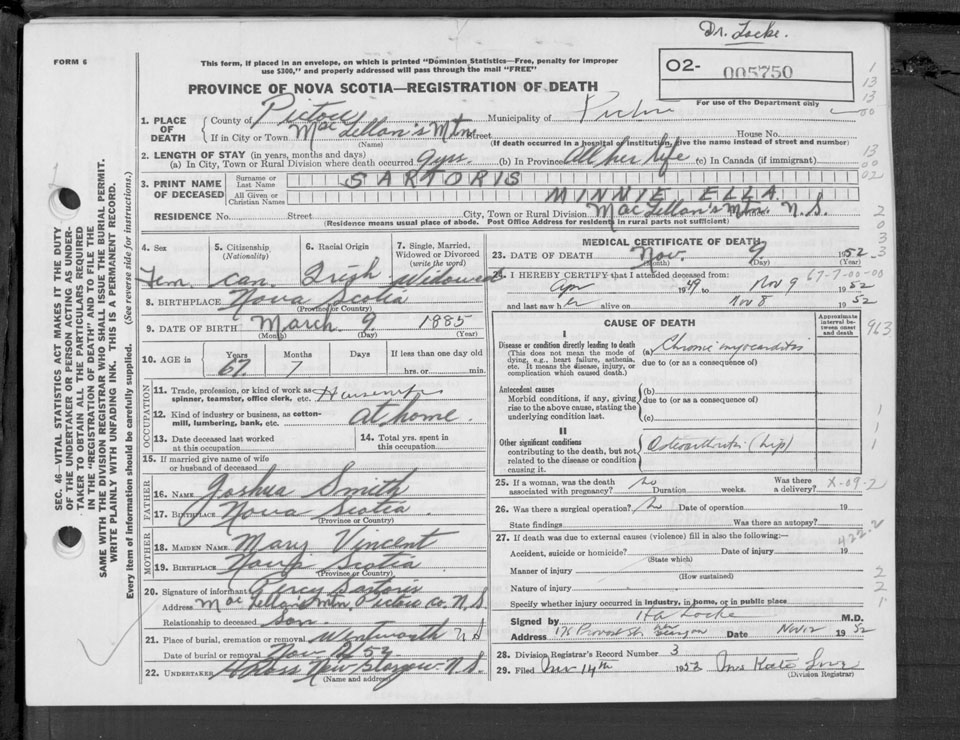 Dr. Locke.
FORM 6
This form, if placed in an envelope, on which is printed "Dominion Statistics—Free, penalty for improper
use $300," and properly addressed will pass through the mail "FREE"
O2- 005750
For use of the Department only
PROVINCE OF NOVA SCOTIA—REGISTRATION OF DEATH
1. PLACE OF DEATH
County of Pictou Municipality of Pictou
If in City or Town MacLellan's Mtn. Street House No.
(Name) (If death occurred in a hospital of institution, give the name instead of street and number)
2. LENGTH OF STAY (in years, months and days)
(a) In City, Town or Rural Division where death occurred 9 yrs. (b) In Province All her life (c) In Canada (if immigrant)
3. PRINT NAME OF DECEASED
Surname or Last Name SARTORIS
All Given or Christian Names MINNIE ELLA
RESIDENCE No. Street City, Town or Rural Division MacLellan's Mtn. N.S.
(Residence means usual place of abode. Post Office Address for residents in rural parts not sufficient)
4. Sex Fem.
5. Citizenship (Nationality) Can.
6. Racial Origin Irish
7. Single, Married, Widowed or Divorced (write the word) Widowed
8. BIRTHPLACE Nova Scotia
(Province or Country)
9. DATE OF BIRTH March 9 1885
(Month) (Day) (Year)
10. AGE in Years 67 Months 7 Days If less than one day old hrs. or min.
OCCUPATION
11. Trade, profession, or kind of work as spinner, teamster, office clerk, etc. Housewife
12. Kind of industry or business, as cotton-mill, lumbering, bank, etc. at home
13. Date deceased last worked at this occupation
14. Total yrs. spent in this occupation
15. If married give name of wife or husband of deceased
FATHER
16. NAME Joshua Smith
17. BIRTHPLACE Nova Scotia
(Province or Country)
MOTHER
18. MAIDEN NAME Mary Vincent
19. BIRTHPLACE Nova Scotia
(Province or Country)
20. Signature of informant Percy Sartoris
Address MacLellan's Mtn Pictou Co. N.S.
Relationship to deceased son.
21. Place of burial, cremation or removal Wentworth N S
Date of burial or removal Nov 12/52
22. UNDERTAKER New Glasgow N.S.
(Name and address)
MEDICAL CERTIFICATE OF DEATH
23. DATE OF DEATH Nov. 9 1952
(Month) (Day) (Year)
67-7-00-00
24. I HEREBY CERTIFY that I attended deceased from:
Apr 1949 to Nov 9 1952
and last saw her alive on Nov 8 1952
CAUSE OF DEATH
Approximate interval between onset and death
963
I
Disease or condition directly leading to death
(This does not mean the mode of dying, e.g., heart failure, asthenia, etc. It means the disease, injury, or complication which caused death.)
(a) Chronic myocarditis
due to (or as a consequence of)
Antecedent causes
Morbid conditions, if any, giving rise to the above cause, stating the underlying condition last.
(b)
due to (or as a consequence of)
(c)
II
Other significant conditions
contributing to the death, but not related to the disease or condition causing it.
Osteoarthritis (hip)
25. If a woman, was the death associated with pregnancy? No Duration weeks. Was there a delivery?
X-09-2
26. Was there surgical operation? No Date of operation 19
State findings Was there an autopsy?
27. If death was due to external causes (violence) fill in also the following:—
422-2
Accident, suicide or homicide? Date of injury 19
(State which)
Manner of injury
(How sustained)
Nature of injury
Specify whether injury occurred in industry, in home, or in public place
Signed by H A Locke M.D.
Address 176 Provost St. New Glasgow Date Nov 12 1952
28. Division Registrar's Record Number 3
29. Filed Nov 14th 1952 Mrs Kate
(Division Registrar)
SEC. 46—VITAL STATISTICS ACT MAKES IT THE DUTY
OF THE UNDERTAKER OR PERSON ACTING AS UNDER-
TAKER TO OBTAIN ALL THE PARTICULARS REQUIRED
IN THE "REGISTRATION OF DEATH" AND TO FILE THE
SAME WITH THE DIVISION REGISTRAR WHO SHALL ISSUE THE BURIAL PERMIT.
WRITE PLAINLY WITH UNFADING INK. THIS IS A PERMANENT RECORD.
Every item of information should be carefully supplied. (See reverse side for instructions.)